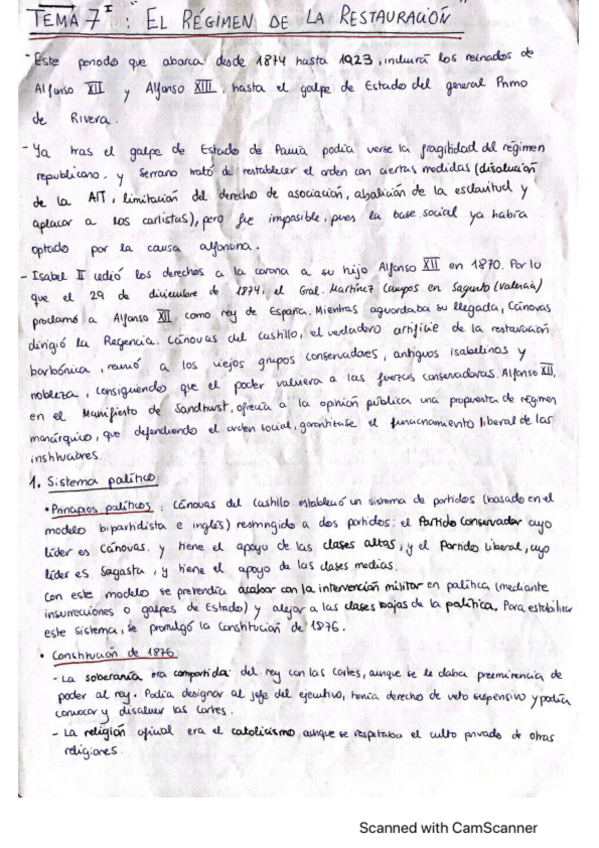 TEMA 7 I : "EL RÉGIMEN DE LA RESTAURACIÓN"
- Este periodo que abarca desde 1874 hasta 1923, incluirá los reinados de
Alfonso XII y Alfonso XIII, hasta el golpe de Estado del general Primo
de Rivera.
- Ya tras el golpe de Estado de Pavía podía verse la fragilidad del régimen
republicano. y Serrano trató de restablecer el orden con ciertas medidas (disolución
de la AIT, limitación del derecho de asociación, abolición de la esclavitud y
aplacar a los carlistas), pero fue imposible, pues la base social ya había
optado por la causa alfonsina.
- Isabel II cedió los derechos a la corona a su hijo Alfonso XII en 1870. Por lo
que el 29 de diciembre de 1874, el Gral. Martínez Campos en Sagunto (Valencia)
proclamó a Alfonso XII como rey de España. Mientras aguardaba su llegada, Cánovas
dirigió la Regencia. Cánovas del Castillo, el verdadero artífice de la restauración
borbónica, reunió a los viejos grupos conservadores, antiguos isabelinos y
nobleza, consiguiendo que el poder volviera a las fuerzas conservadoras. Alfonso XII,
en el Manifiesto de Sandhurst, ofrecía a la opinión pública una propuesta de régimen
monárquico, que defendiendo el orden social, garantizase el funcionamiento liberal de las
instituciones.
1. Sistema político
• Principios políticos : Cánovas del Castillo estableció un sistema de partidos (basado en el
modelo bipartidista e inglés) restringido a dos partidos: el Partido Conservador cuyo
líder es Cánovas. y tiene el apoyo de las clases altas, y el Partido Liberal, cuyo
líder es Sagasta, y tiene el apoyo de las clases medias.
Con este modelo se pretendía acabar con la intervención militar en política (mediante
insurrecciones o golpes de Estado) y alejar a las clases bajas de la política. Para estabilizar
este sistema, se promulgó la Constitución de 1876.
• Constitución de 1876
- La soberanía era compartida del rey con las Cortes, aunque se le daba preeminencia de
poder al rey. Podía designar al jefe del ejecutivo, tenía derecho de veto suspensivo y podía
convocar y disolver las Cortes.
- La religión oficial era el catolicismo, aunque se respetaba el culto privado de otras
religiones.
Scanned with CamScanner